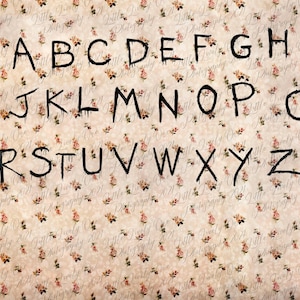 A B C D E F G H I
J K L M N O P
R S T U V W X Y Z